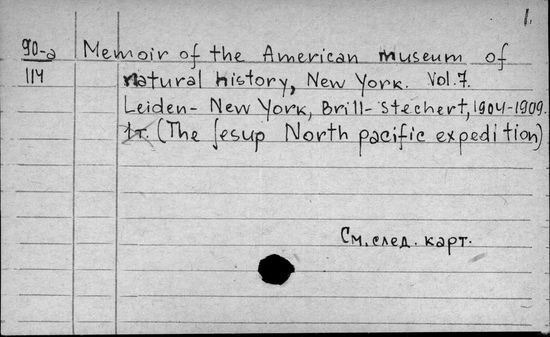 1.
90-a Memoir of the American museum of
114 natural history, New York. Vol. 7.
Leiden - New York, Brill - Stechert, 1904-1909.
1т. (The Jesup North pacific expedition)
См. след. карт.